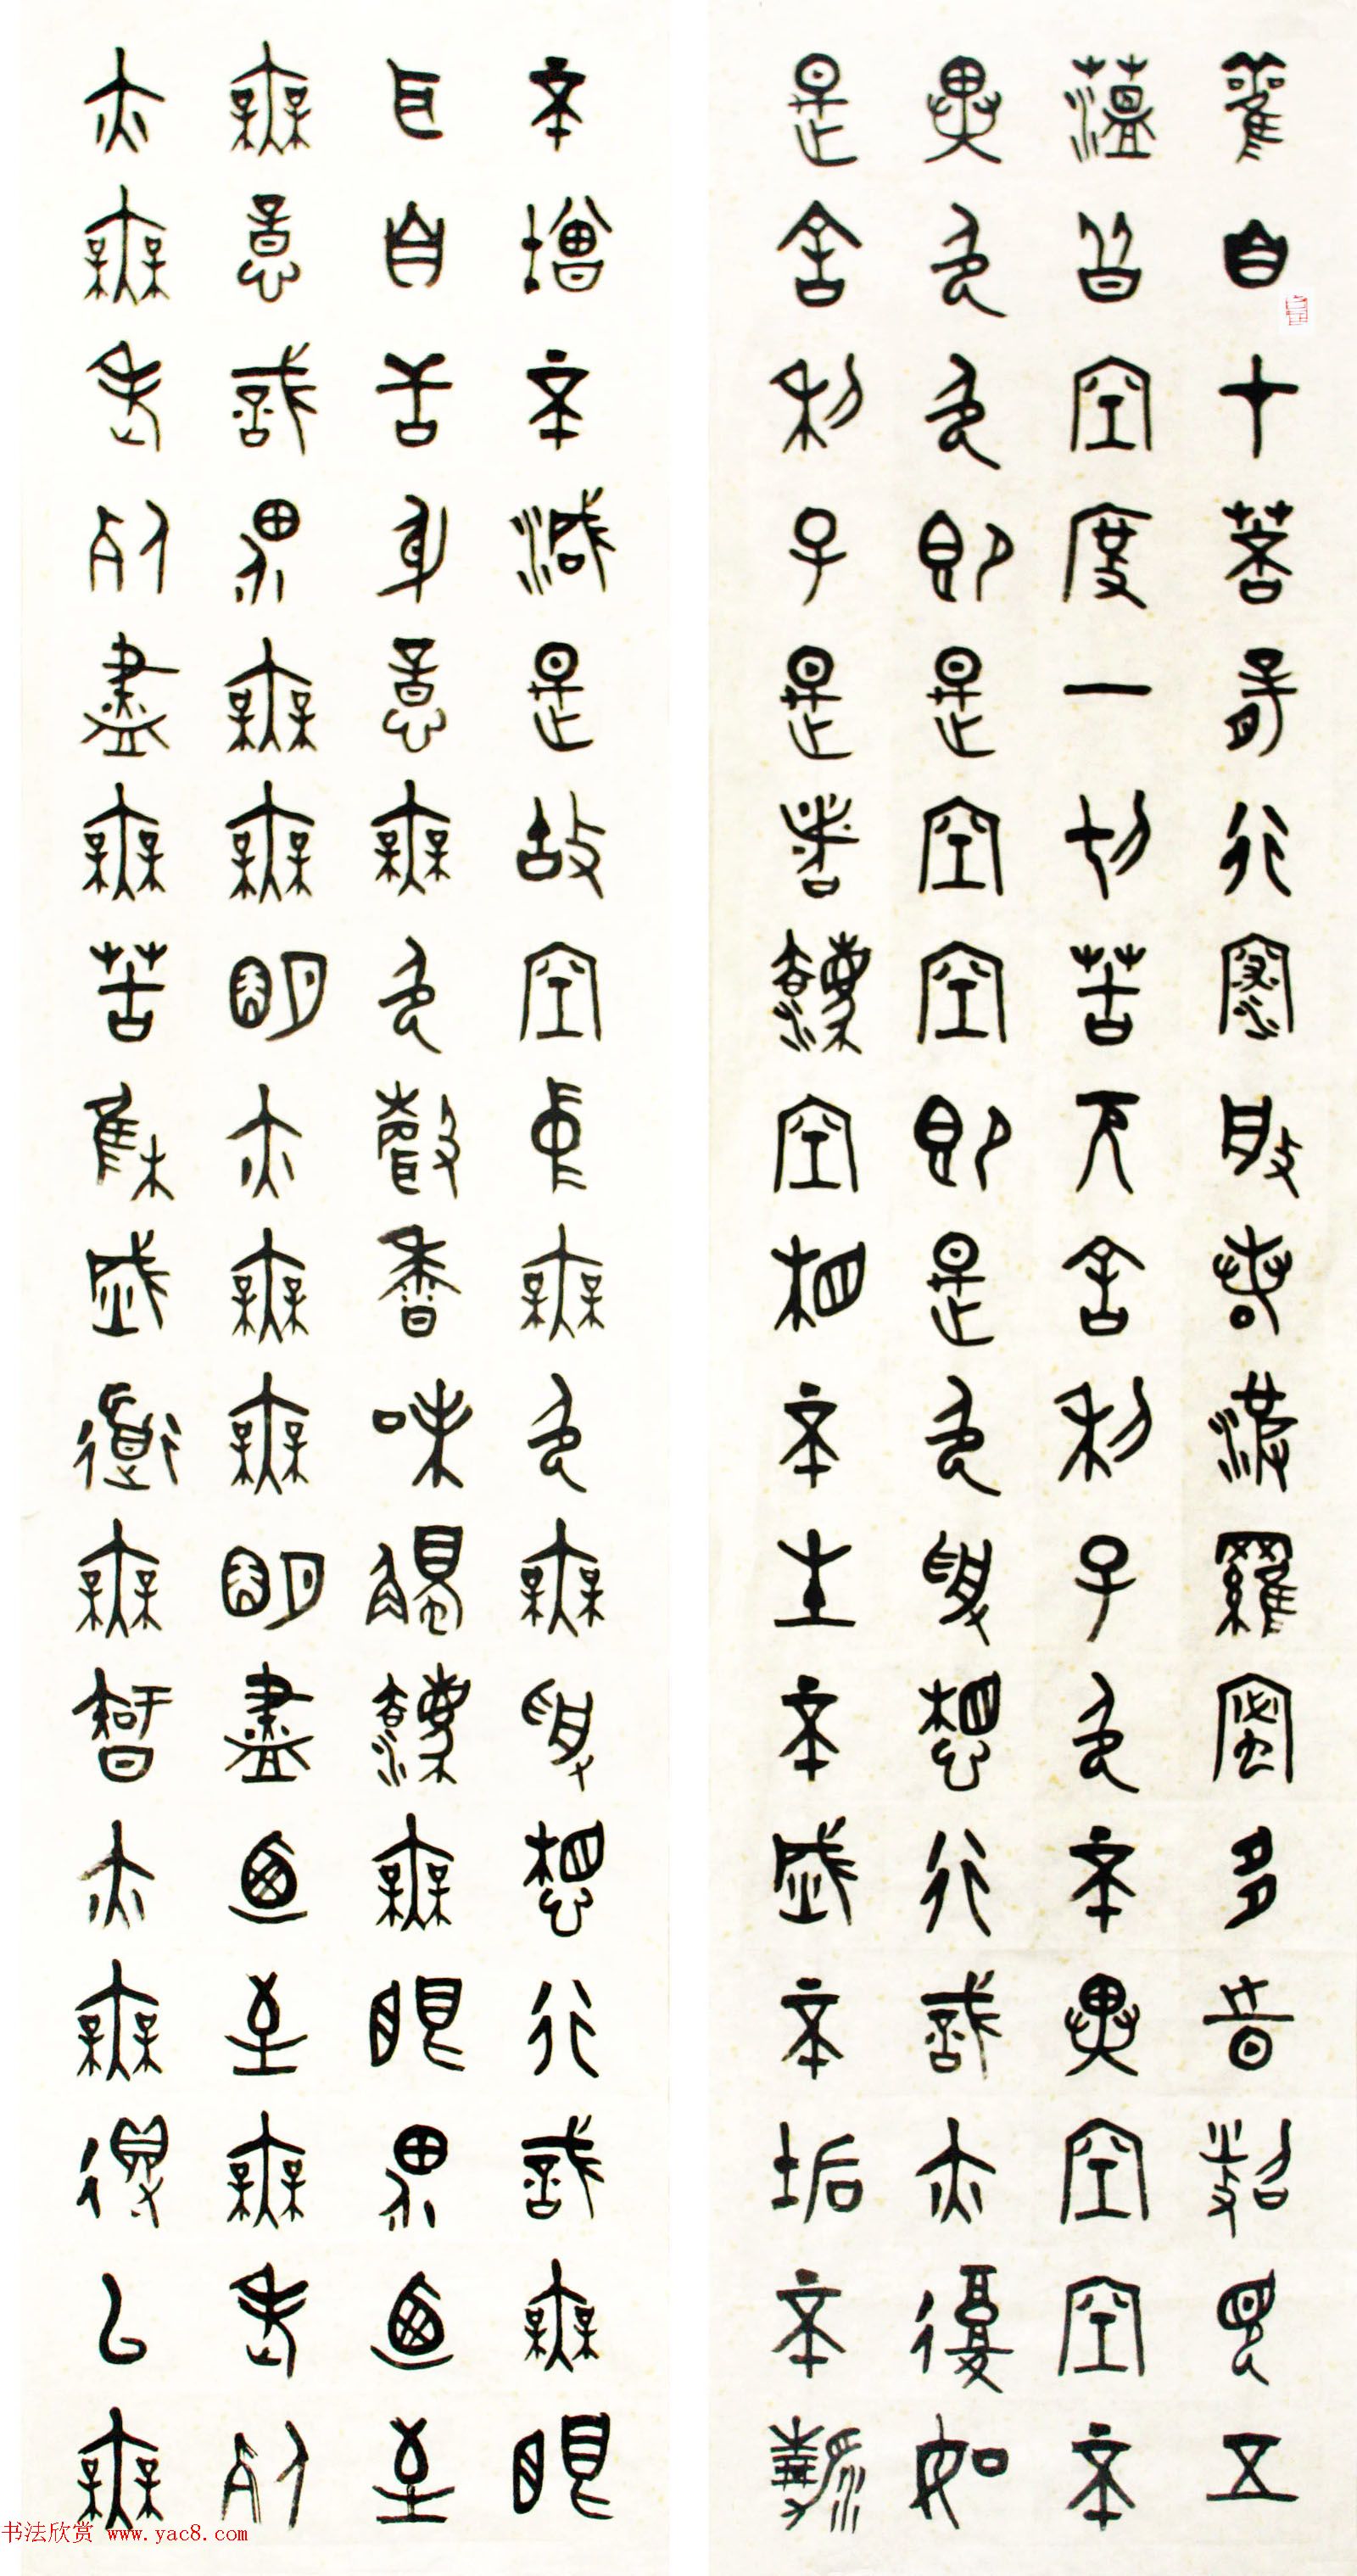 觀自在菩薩行深般若波羅蜜多時照見五
蘊皆空度一切苦厄舍利子色不異空空不
異色色即是空空即是色受想行識亦復如
是舍利子是諸法空相不生不滅不垢不淨
不增不減是故空中無色無受想行識無眼
耳鼻舌身意無色聲香味觸法無眼界乃至
無意識界無無明亦無無明盡乃至無老死
亦無老死盡無苦集滅道無智亦無得以無
书法欣赏 www.yac8.com